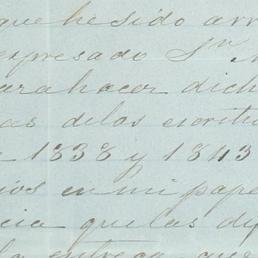 que he sido arr
expresado Sr
para hacer dich
as delos escritu
1838 y 1843
ios en mi pape
cia que las dy
la entrega que